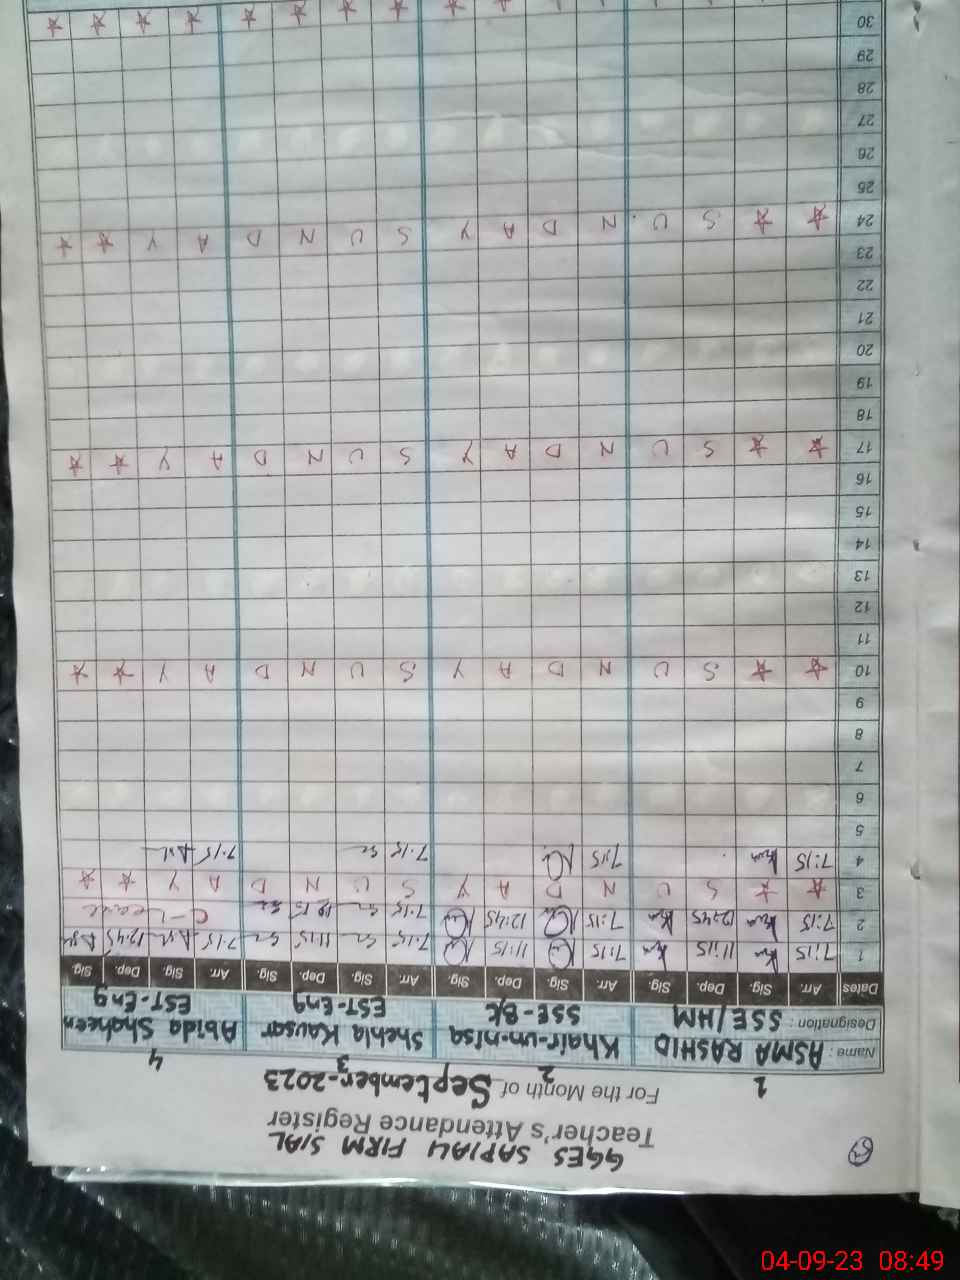 GGES SAPIALI FIRM SIAL
Teacher's Attendance Register
For the Month of September-2023
1 2 3 4
Name: ASMA RASHID Khair-un-nisa Shehla Kausar Abida Shaheen
Designation: SSE/HM SSE-B/C EST-Eng EST-Eng
Dates Arr. Sig. Dep. Sig. Arr. Sig. Dep. Sig. Arr. Sig. Dep. Sig. Arr. Sig. Dep. Sig.
1 7:15 11:15 7:15 11:15 7:15 11:15 7:15 12:45
2 7:15 12:45 7:15 12:45 7:15 C-Leave
3 S U N D A Y S U N D A Y
4 7:15 7:15 7:15 7:15
5
6
7
8
9
10 S U N D A Y S U N D A Y
11
12
13
14
15
16
17 S U N D A Y S U N D A Y
18
19
20
21
22
23
24 S U N D A Y S U N D A Y
25
26
27
28
29
30
04-09-23 08:49